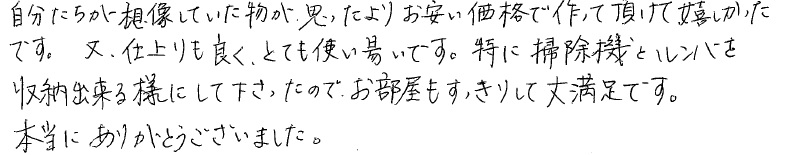 自分たちが想像していた物が、思ったよりお安い価格で作って頂けて嬉しかった
です。 又、仕上りも良く、とても使い易いです。特に掃除機とルンバを
収納出来る様にして下さったので、お部屋もすっきりして大満足です。
本当にありがとうございました。